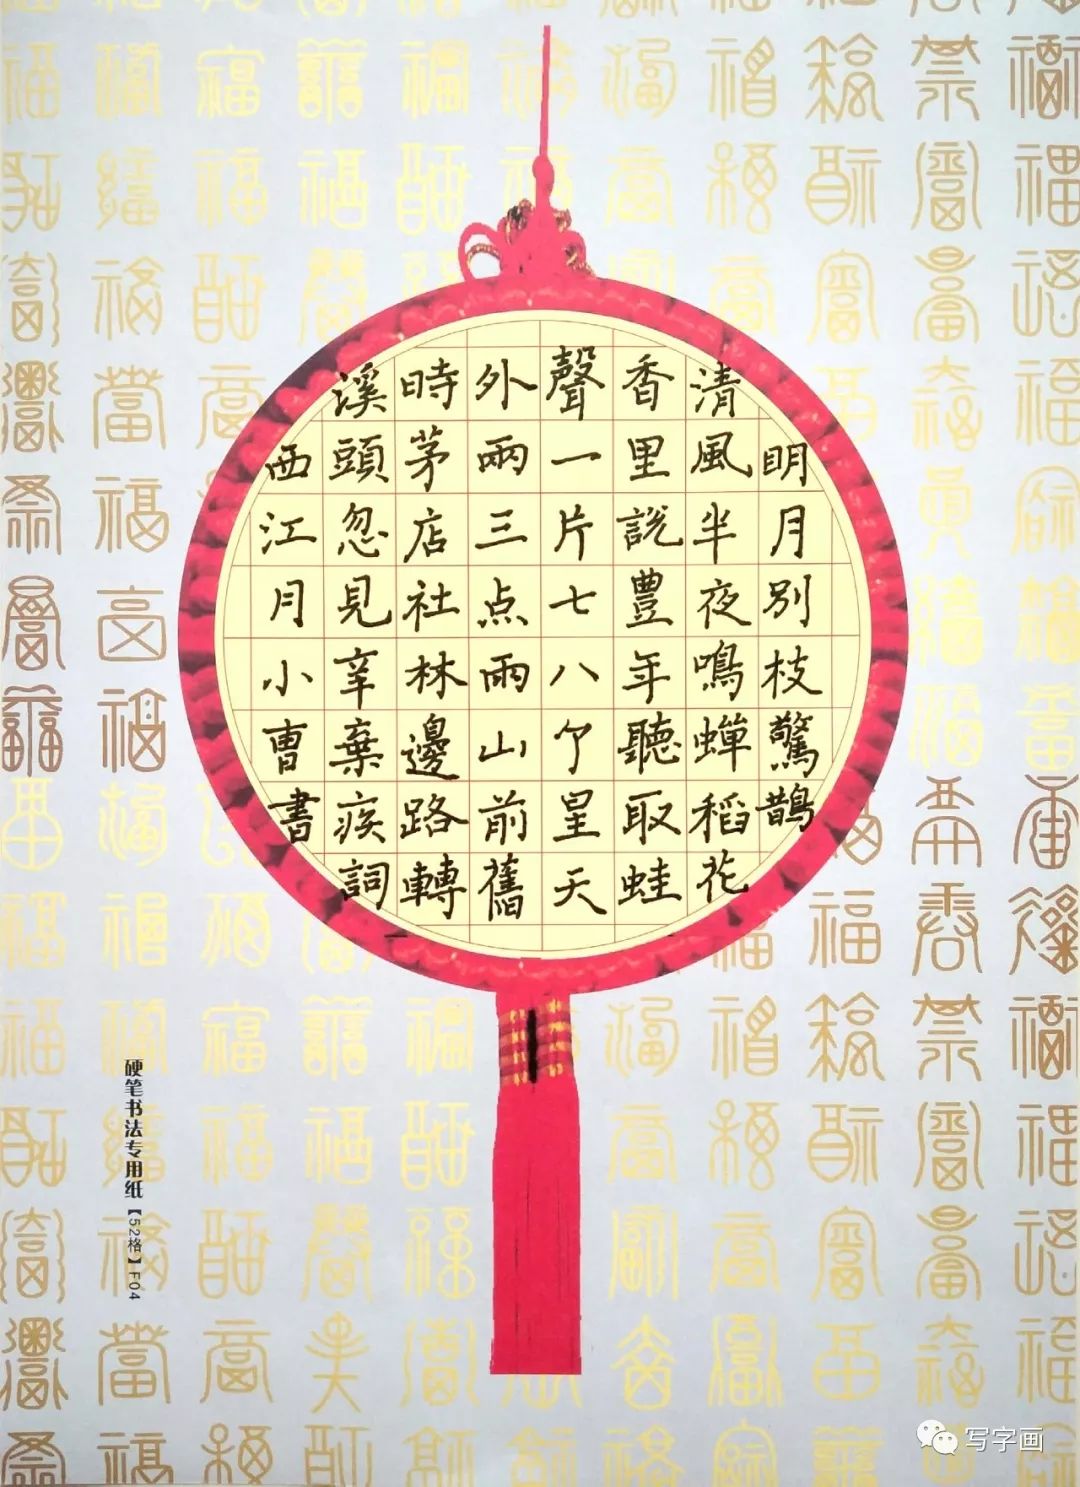 明月別枝驚鵲
清風半夜鳴蟬稻花
香里説豊年聽取蛙
聲一片七八个星天
外兩三点雨山前舊
時茅店社林邊路轉
溪頭忽見辛棄疾詞
西江月小曹書
硬笔书法专用纸【52格】F04
写字画